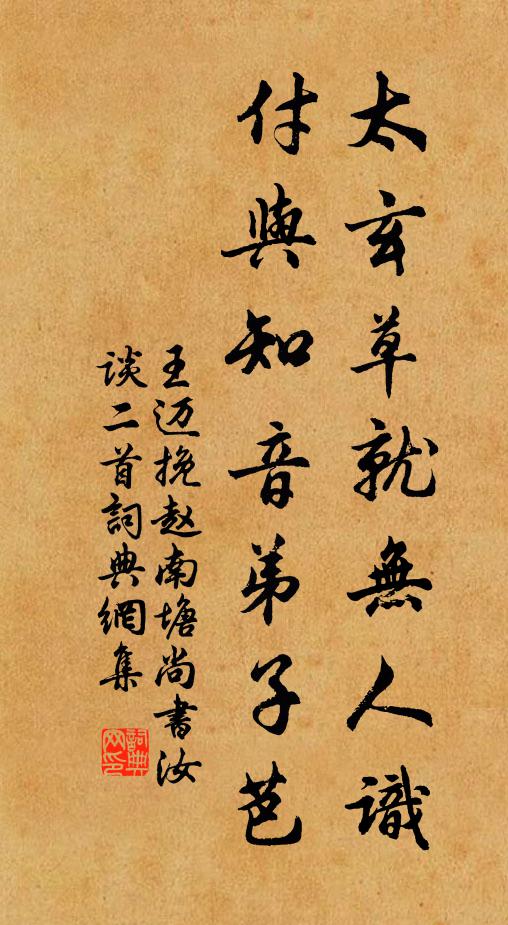 太玄草就無人識
付與知音弟子芭
王迈挽赵南塘尚書汝
谈二首詞典網集
詞典网印